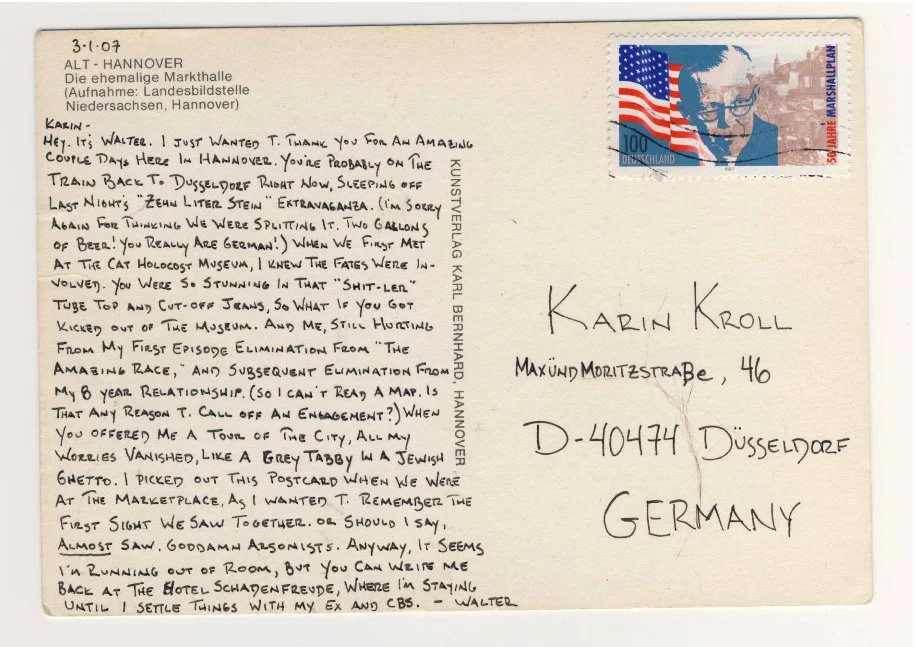 3·1·07
ALT - HANNOVER
Die ehemalige Markthalle
(Aufnahme: Landesbildstelle
Niedersachsen, Hannover)
KARIN -
HEY. IT'S WALTER. I JUST WANTED T. THANK YOU FOR AN AMAZING
COUPLE DAYS HERE IN HANNOVER. YOU'RE PROBABLY ON THE
TRAIN BACK TO DUSSELDORF RIGHT NOW, SLEEPING OFF
LAST NIGHT'S "ZEHN LITER STEIN" EXTRAVAGANZA. (I'M SORRY
AGAIN FOR THINKING WE WERE SPLITTING IT. TWO GALLONS
OF BEER! YOU REALLY ARE GERMAN!) WHEN WE FIRST MET
AT THE CAT HOLOCOST MUSEUM, I KNEW THE FATES WERE IN-
VOLVED. YOU WERE SO STUNNING IN THAT "SHIT-LER"
TUBE TOP AND CUT-OFF JEANS, SO WHAT IF YOU GOT
KICKED OUT OF THE MUSEUM. AND ME, STILL HURTING
FROM MY FIRST EPISODE ELIMINATION FROM "THE
AMAZING RACE," AND SUBSEQUENT ELIMINATION FROM
MY 8 YEAR RELATIONSHIP. (SO I CAN'T READ A MAP. IS
THAT ANY REASON T. CALL OFF AN ENGAGEMENT?) WHEN
YOU OFFERED ME A TOUR OF THE CITY, ALL MY
WORRIES VANISHED, LIKE A GREY TABBY IN A JEWISH
GHETTO. I PICKED OUT THIS POSTCARD WHEN WE WERE
AT THE MARKETPLACE, AS I WANTED T. REMEMBER THE
FIRST SIGHT WE SAW TOGETHER. OR SHOULD I SAY,
ALMOST SAW. GODDAMN ARSONISTS. ANYWAY, IT SEEMS
I'M RUNNING OUT OF ROOM, BUT YOU CAN WRITE ME
BACK AT THE HOTEL SCHADENFREUDE, WHERE I'M STAYING
UNTIL I SETTLE THINGS WITH MY EX AND CBS. - WALTER
KUNSTVERLAG KARL BERNHARD, HANNOVER
100
DEUTSCHLAND
1997
50 JAHRE MARSHALLPLAN
KARIN KROLL
MAXÜNDMORITZSTRAßE, 46
D-40474 DÜSSELDORF
GERMANY